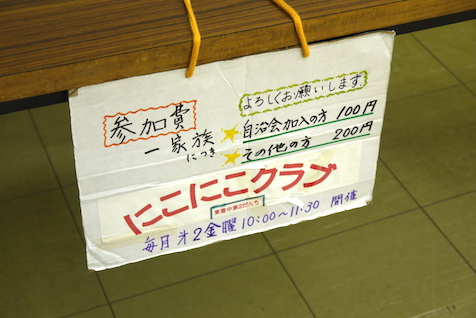 よろしくお願いします
参加費
一家族につき
自治会加入の方 100円
その他の方 200円
にこにこクラブ
東豊中第2だんち
毎月オ2金曜 10:00〜11:30 開催